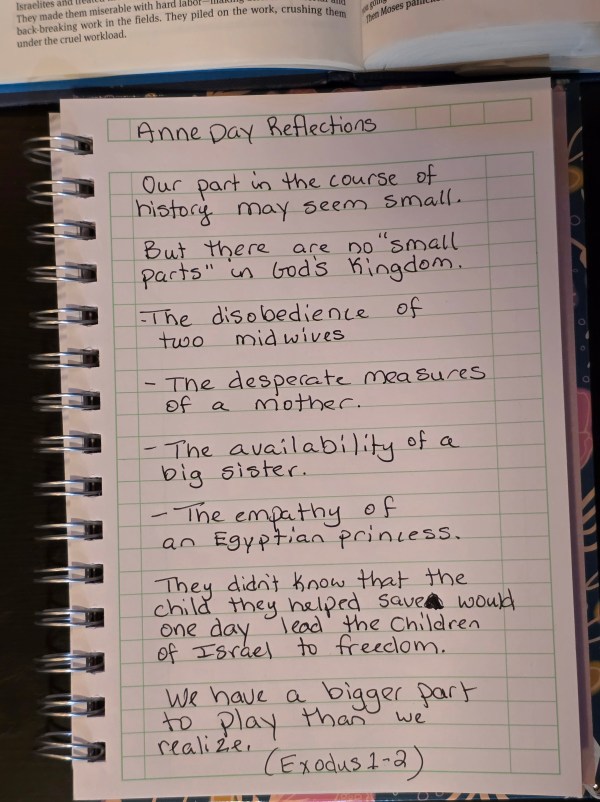 Israelites and
They made them miserable with hard labor—making
back-breaking work in the fields. They piled on the work, crushing them
under the cruel workload.
Then Moses
Anne Day Reflections
Our part in the course of
history may seem small.
But there are no "small
parts" in God's Kingdom.
-The disobedience of
two midwives
- The desperate measures
of a mother.
- The availability of a
big sister.
- The empathy of
an Egyptian princess.
They didn't know that the
child they helped save would
one day lead the children
of Israel to freedom.
We have a bigger part
to play than we
realize.
(Exodus 1-2)